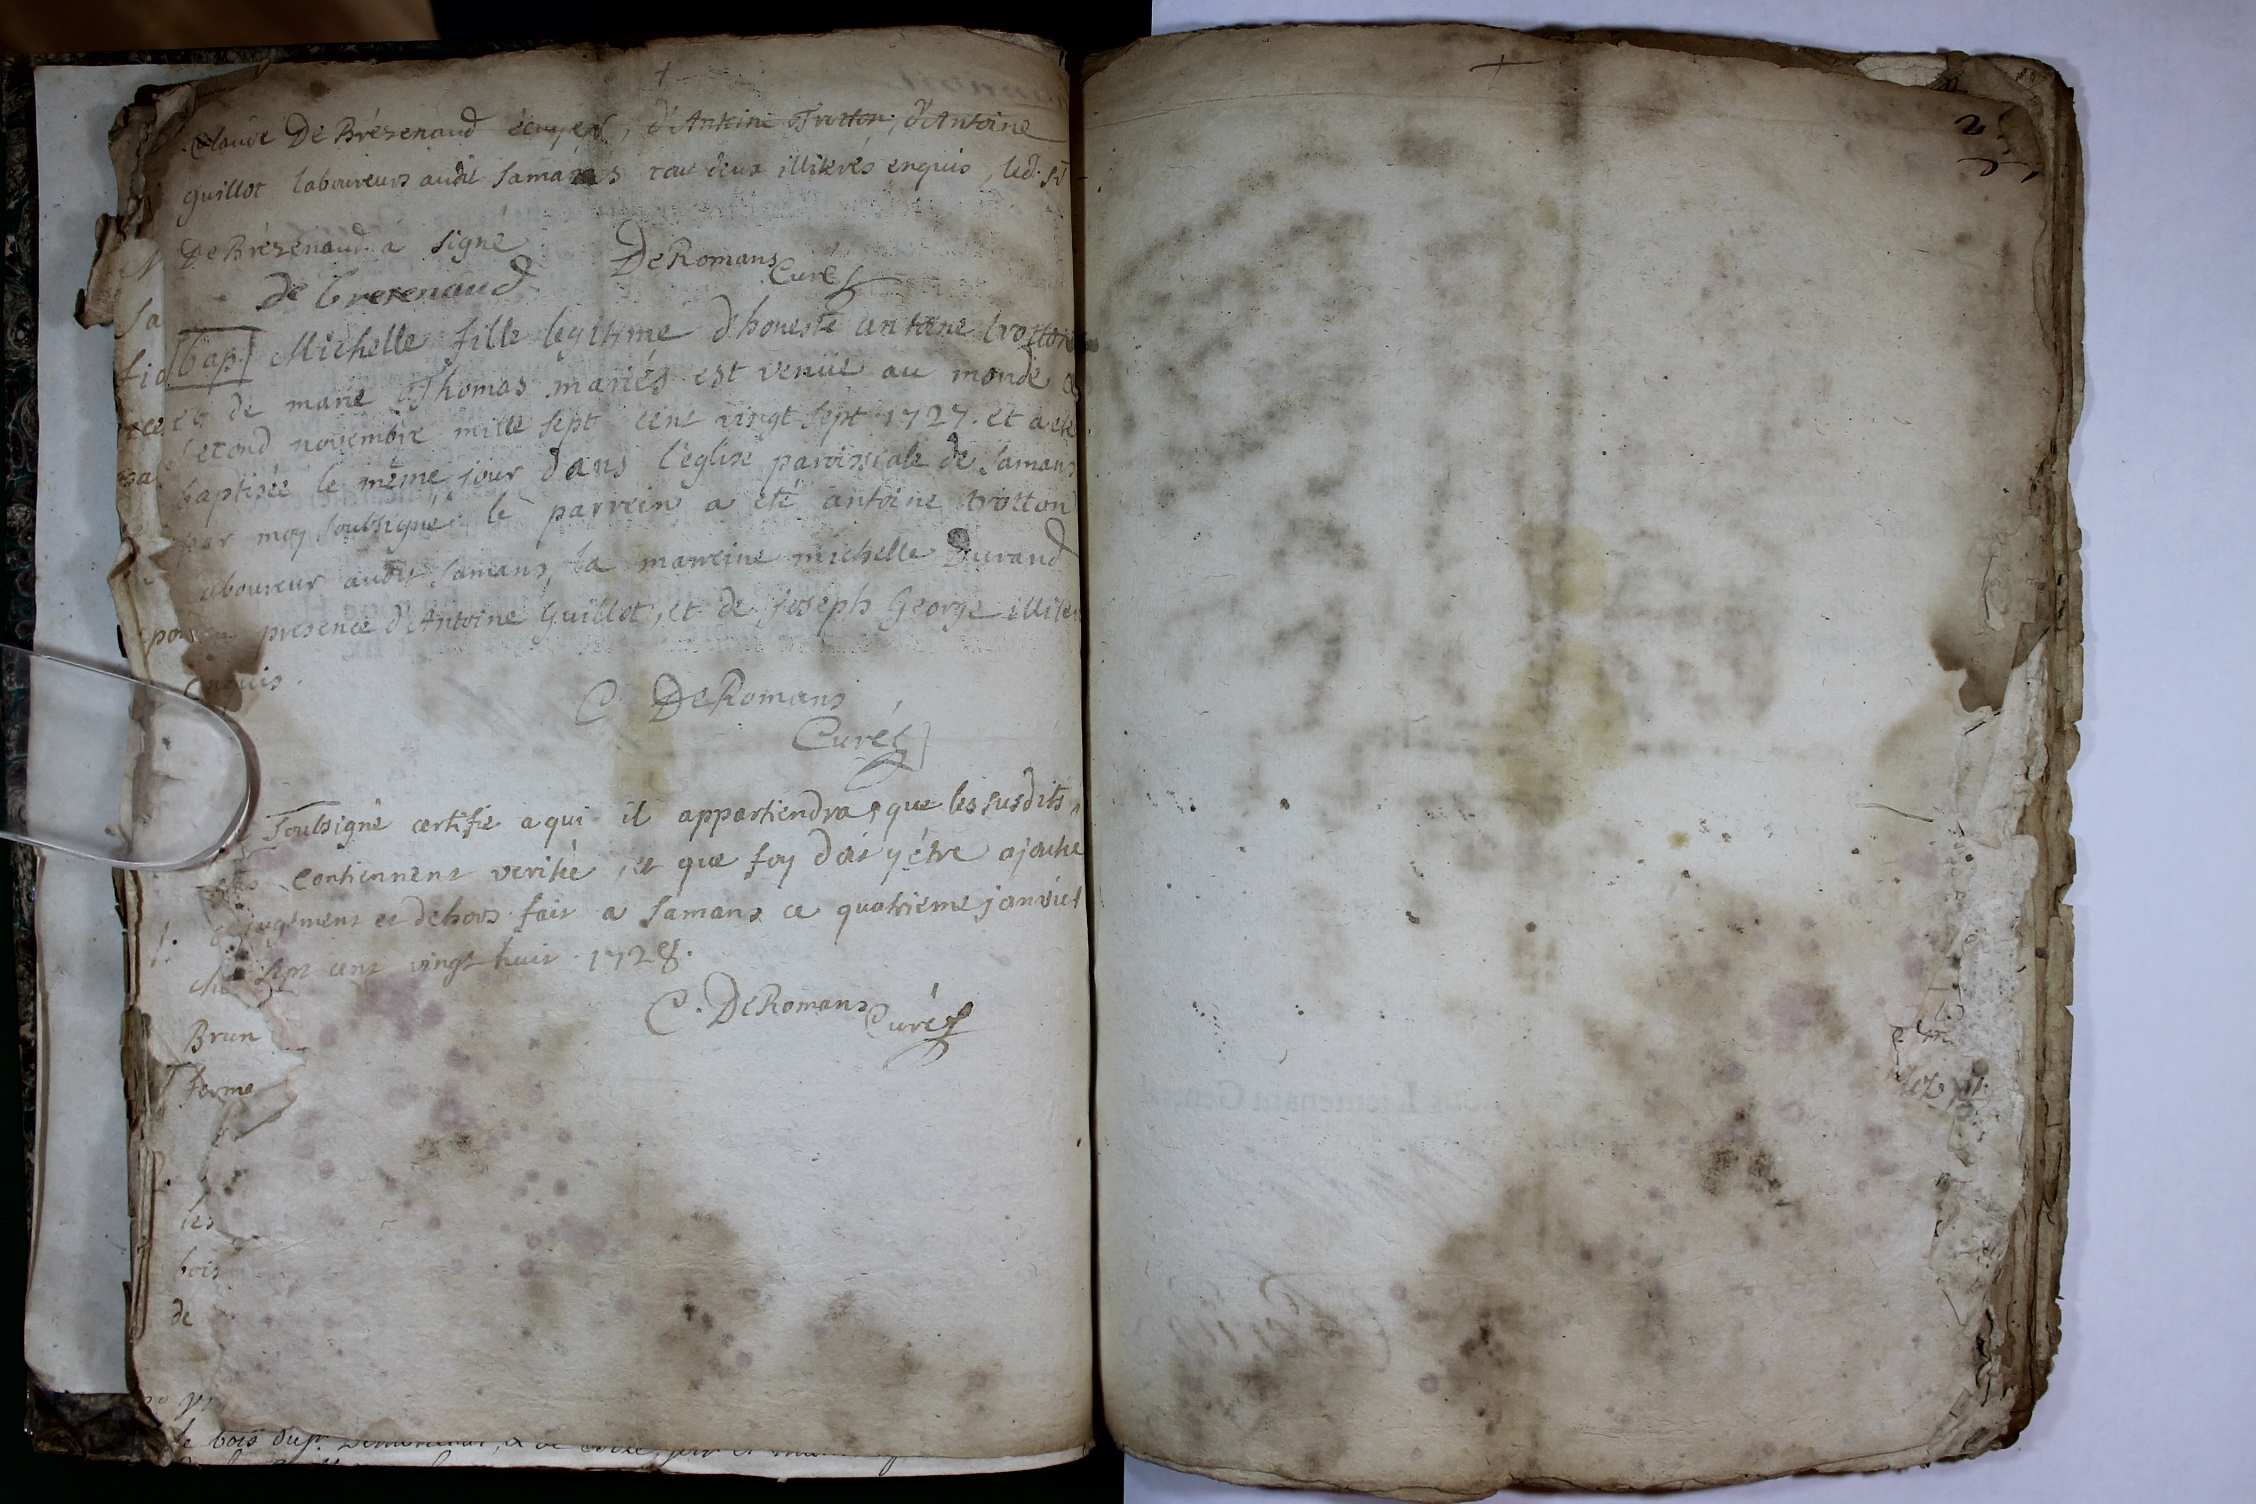 +
Claude De Brézenaud écuyer, d'Antoine Trotton, d'Antoine
guillot laboureurs audit Samans tou deux illiterés enquis, led. Sr
De Brézenaud a signé
De Romans
Curé
de brezenaud
bap. Michelle fille legitime d'honeste antoine trotton
et de marie Thomas mariés est venüe au monde
second novembre mille sept cent vingt sept 1727. et a eté
baptisée le même jour dans l'église paroissiale de Samans
par moy soubsigné le parrein a eté antoine trotton
laboureur audit Samans, la marreine michelle Durand
presence d'Antoine Guillot, et de joseph George illite
enquis.
C. De Romans
Curé
Soubsigné certifie a qui il appartiendra, que les susdits
contiennent verité, et que foy doit y être ajoutée
jugement et dehors fait a Samans ce quatrieme janvier
sept cent vingt huit 1728.
C. De Romans
Curé
Sa
fid
Brun
ferme
les
bois
de
le bois du
+
2
Lieutenant Gene